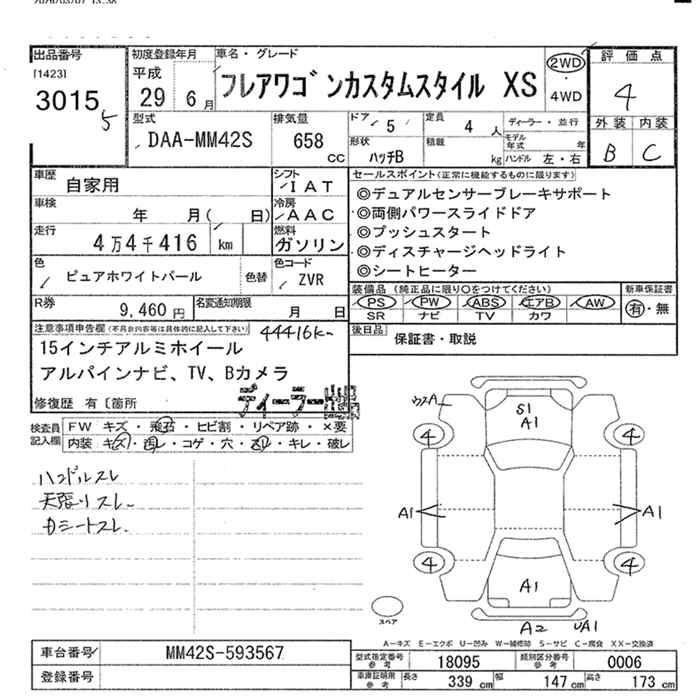 出品番号
[1423]
3015 5
初度登録年月
平成
29 6月
車名・グレード
フレアワゴンカスタムスタイル XS
2WD
・
4WD
評価点
4
外装 内装
B C
型式
DAA-MM42S
排気量
658
cc
ドア 5
定員 4 人
ディーラー・並行
形状
ハッチB
積載 kg
モデル年式 年
ハンドル 左・右
車歴
自家用
シフト
IAT
車検
年 月( 日)
冷房
AAC
走行
4万4千416 km
燃料
ガソリン
色
ピュアホワイトパール
色替
色コード
ZVR
R券
9,460円
名変通知期限
月 日
セールスポイント(正常に機能するものに限ります)
◎デュアルセンサーブレーキサポート
◎両側パワースライドドア
◎プッシュスタート
◎ディスチャージヘッドライト
◎シートヒーター
装備品 (純正品に限り○をつけてください)
PS PW ABS エアB AW
SR ナビ TV カワ
新車保証書
有・無
後日品
保証書・取説
注意事項申告欄(不具合内容等は具体的に記入して下さい)
44416k
15インチアルミホイール
アルパインナビ、TV、Bカメラ
ディーラー
修復歴 有〔箇所
検査員
記入欄
FW キズ・飛石・ヒビ割・リペア跡・×要
内装 キズ・汚レ・コゲ・穴・スレ・キレ・破レ
ハンドルスレ
天張リスレ
カシートスレ
ウスA
S1
A1
4
4
A1
A1
4
4
A1
A2
UA1
スペア
A-キズ E-エクボ U-凹み W-補修跡 S-サビ C-腐食 XX-交換済
車台番号
MM42S-593567
登録番号
型式指定番号
参考
18095
類別区分番号
参考
0006
車庫証明用
参考
長さ 339 cm
幅 147 cm
高さ 173 cm